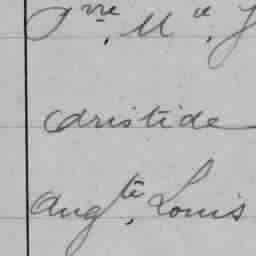 Pre, Mie, J
Aristide
Augte, Louis